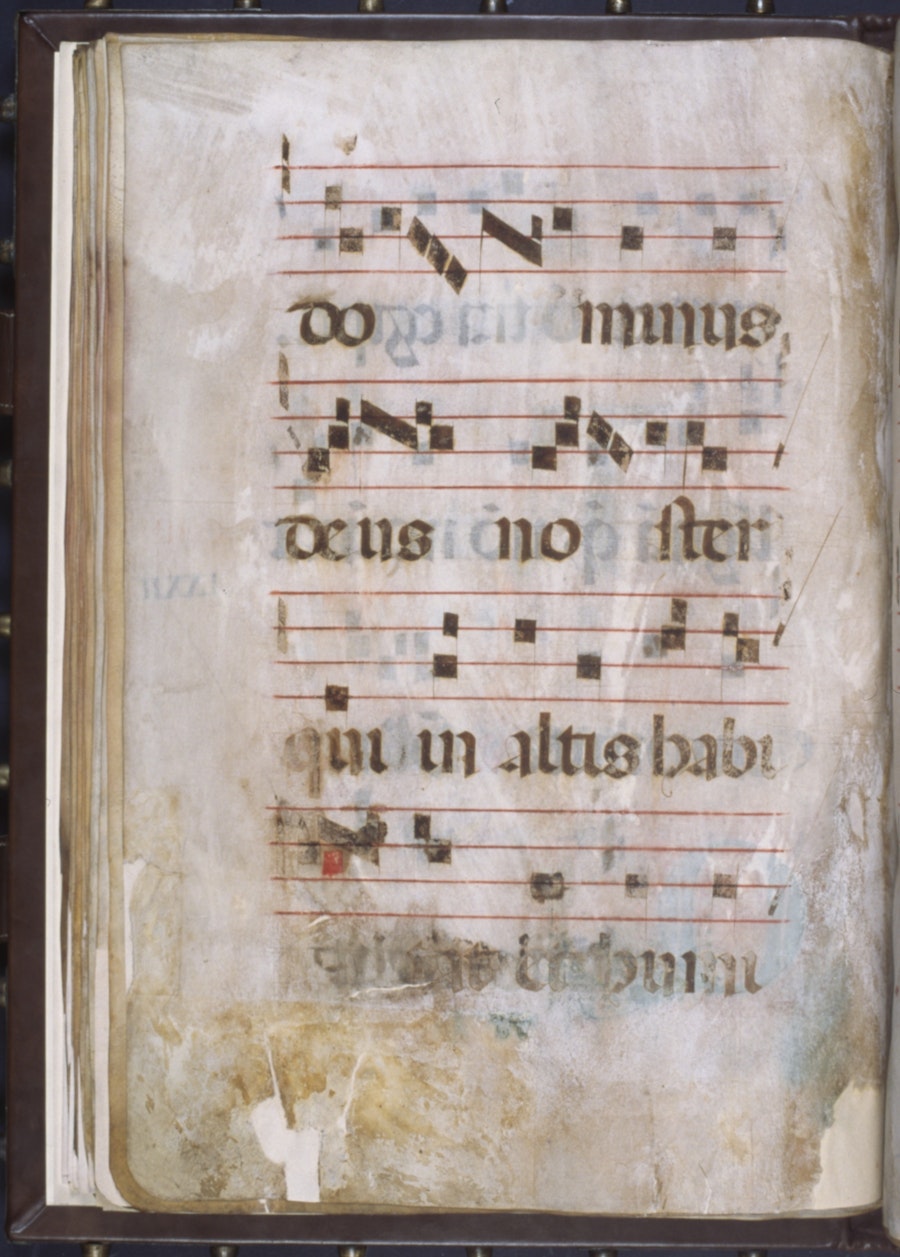 do minus
deus no ster
qui in altis habi
et humi